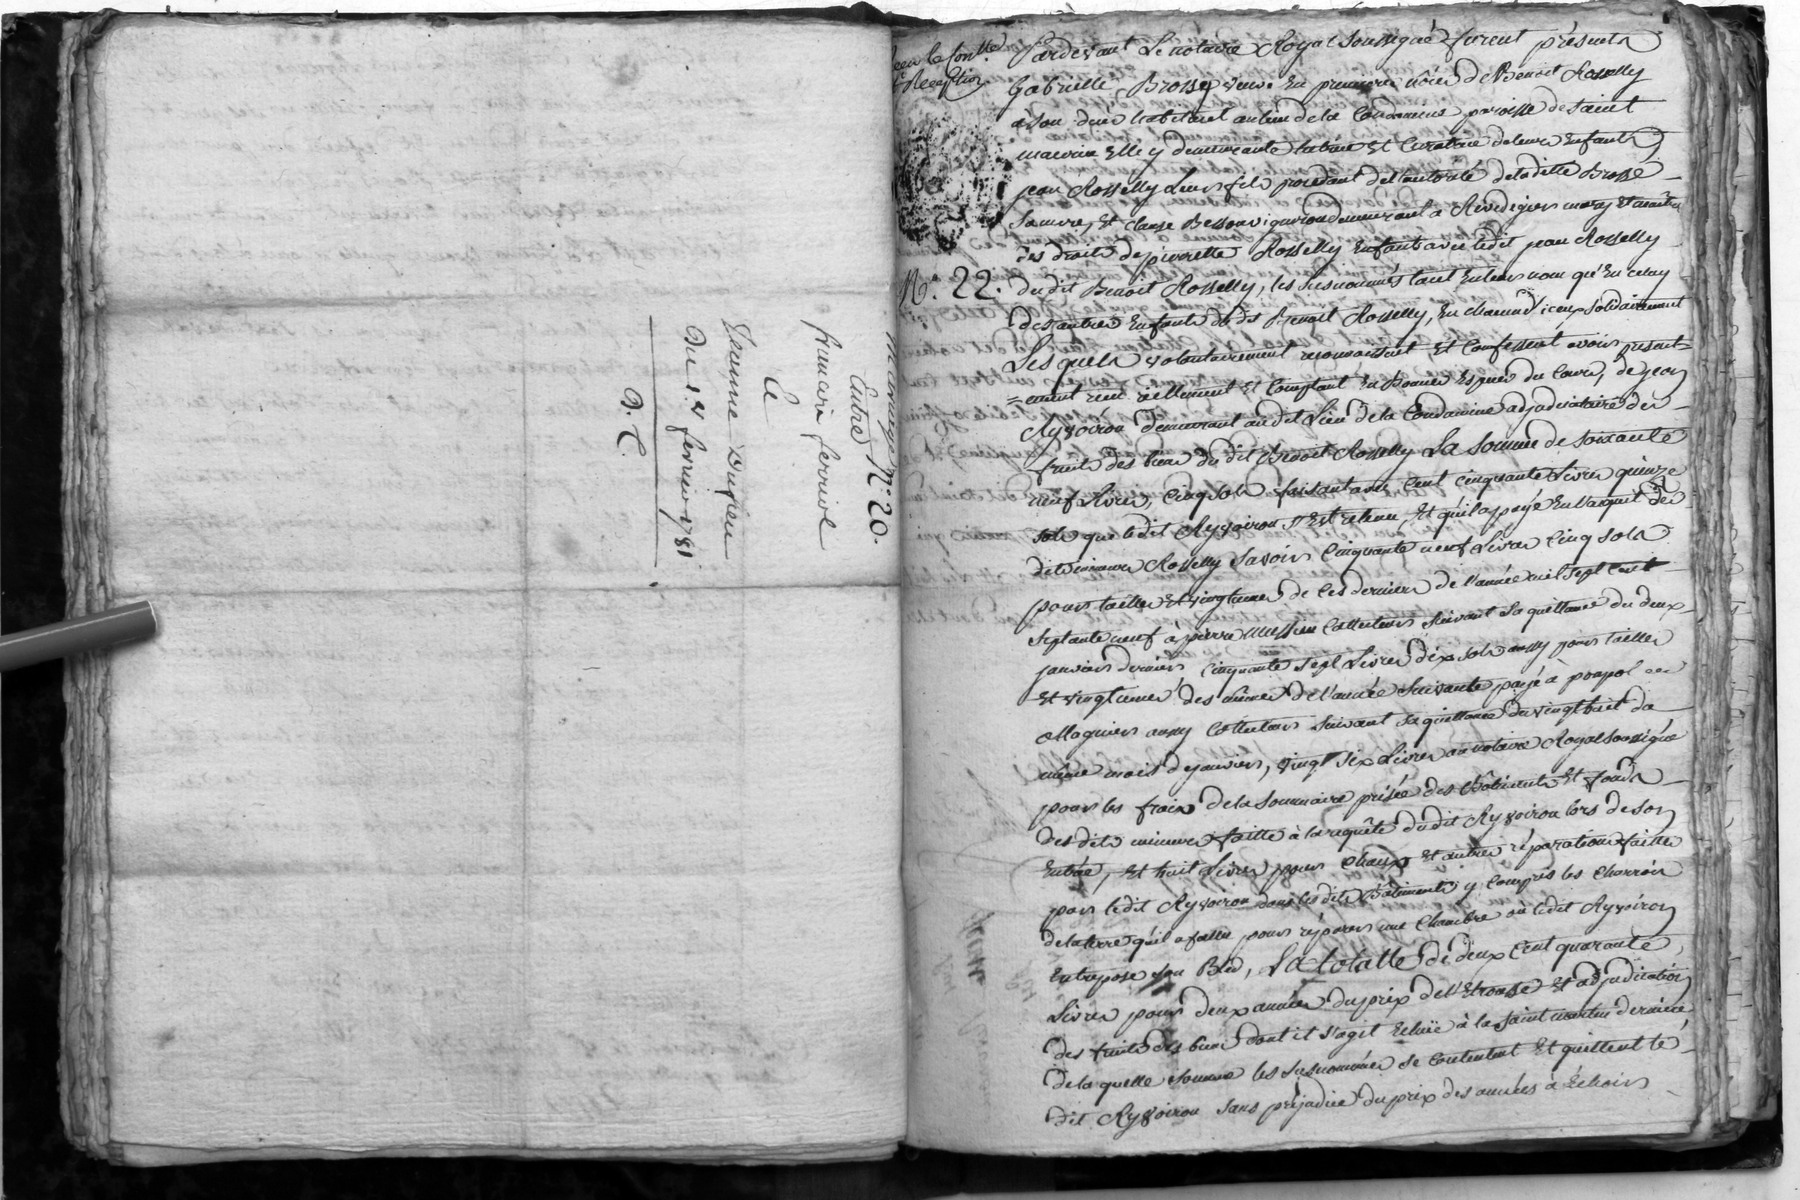 mariage N.° 20.
Entre
francois ferriol
Et
Jeanne Dufieu
Du 1.er fevrier 1781
D. C.
N.° 22.
Pardevant Le notaire Royal Soussigné furent présents
Gabrielle Brosse veuve En premieres nôces de Benoit Rosselly
a Son vivant habitant au lieu de la Condamine paroisse de Saint
maurice Elle y demeurante tutrice Et Curatrice de leurs Enfants
jean Rosselly Leur fils procedant de l'autorité de laditte Brosse
Sa mere, Et Claude Besson vigneron demeurant à Rivedegier mary Et maitre
des droits de pierrette Rosselly Enfants avec ledit jean Rosselly
dudit Benoit Rosselly, les susnommés tant En leurs nom qu'En celuy
des autres Enfants du dit Benoit Rosselly, En chacun d'iceux solidairement
Lesquels volontairement reconnoissent Et Confessent avoir present-
=ement reçu réellement Et Comptant En Bonnes Especes du Cours, de jean
Ryvoiron demeurant au dit Lieu de la Condamine adjudicataire des
fruits des biens du dit Benoit Rosselly La Somme de Soixante
neuf Livres, Cinq sols faisant avec Cent Cinquante Livres quinze
sols que ledit Ryvoiron s'Est retenu, Et qu'il a payé En l'acquit des
dits mineurs Rosselly Savoir Cinquante neuf Livres Cinq sols
pour tailles Et vingtiemes de Ces derniers de l'année mil sept Cent
septante neuf à pierre Collecteur Suivant Sa quittance du deux
janvier dernier Cinquante sept Livres dix sols aussy pour tailles
Et vingtiemes des mêmes de l'année Suivante payé à
Maguier aussy Collecteur Suivant sa quittance du vingt huit du
même mois de janvier, vingt six Livres au notaire Royal Soussigné
pour les fraix de la Sommaire prisée des Bâtiments Et fonds
des dits mineurs faitte à la requête du dit Ryvoiron lors de son
Entrée, Et huit Livres pour chaux Et autres réparations faittes
par ledit Ryvoiron dans les dits Bâtiments y Compris les Charrois
de la terre qu'il a fallu pour réparer une Chambre où ledit Ryvoiron
Entrepose son Bled, La totalle de deux Cent quarante
Livres pour deux années du prix de l'Etrousse Et adjudication
des fruits des biens dont il s'agit Echüe à la saint martin derniere
de la quelle somme les susnommés se Contentent Et quittent le
dit Ryvoiron sans préjudice du prix des années à Echoir